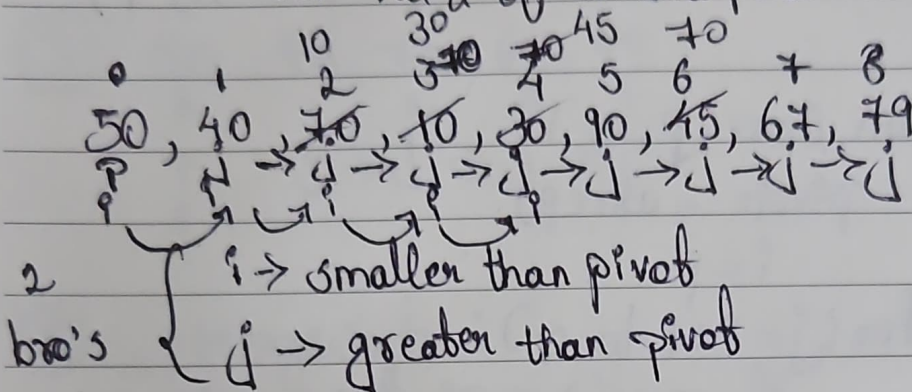 30
10 70 45 70
0 1 2 3 70 4 5 6 7 8
50, 40, 70, 10, 30, 90, 45, 67, 79
P j → j → j → j → j → j → j → j
i i i i i
i → smaller than pivot
2
bro's j → greater than pivot